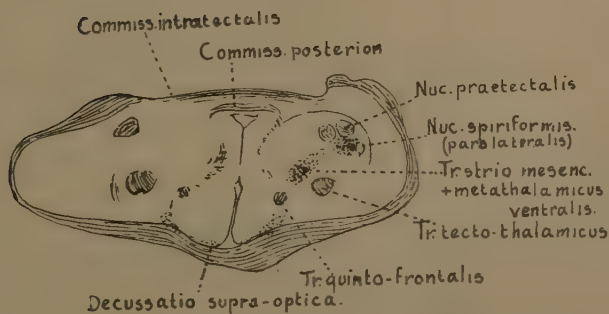 Commiss.intratectalis
Commiss.posterior
Nuc.praetectalis
Nuc.spiriformis.
(pars lateralis)
Tr.strio mesenc.
+metathalamicus
ventralis.
Tr.tecto-thalamicus
Tr.quinto-frontalis
Decussatio supra-optica.